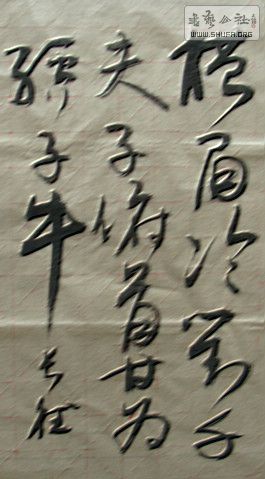 橫眉冷對千
夫子俯首甘为
孺子牛
书艺公社
WWW.SHUFA.ORG